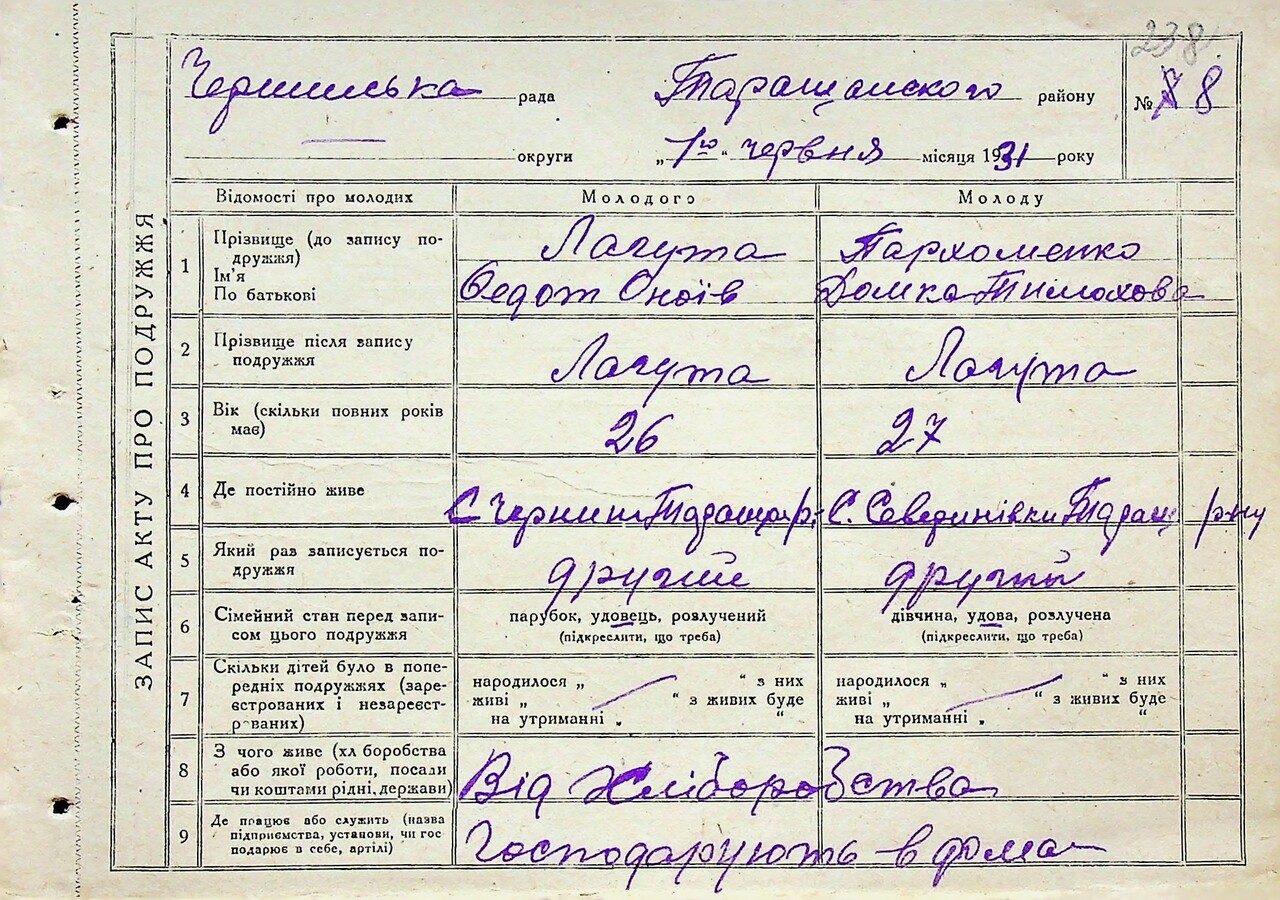 238
Чернинська рада Таращанского району № 8
округи „1го“ червня місяця 1931 року
ЗАПИС АКТУ ПРО ПОДРУЖЖЯ
Відомості про молодих Молодого Молоду
1 Прізвище (до запису по-
дружжя) Лагута Пархоменко
Ім'я
По батькові Федот Оноїв Домка Тимохова
2 Прізвище після запису
подружжя Лагута Лагута
3 Вік (скільки повних років
має) 26 27
4 Де постійно живе С. Чернин Таращ р. С. Северинівки Таращ р-ну
5 Який раз записується по-
дружжя другий другий
6 Сімейний стан перед запи-
сом цього подружжя парубок, удовець, розлучений дівчина, удова, розлучена
(підкреслити, що треба) (підкреслити, що треба)
7 Скільки дітей було в попе-
редніх подружжях (заре-
єстрованих і незареєст-
рованих) народилося „ “ з них народилося „ “ з них
живі „ “ з живих буде живі „ “ з живих буде
на утриманні „ “ на утриманні „ “
8 З чого живе (хл боробства
або якої роботи, посади
чи коштами рідні, держави) Від Хліборобства
9 Де працює або служить (назва
підприємства, установи, чи гос
подарює в себе, артілі) Господарують в дома